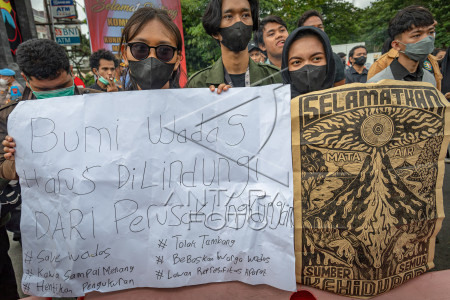 ATM
BNI
Bumi Wadas
Harus DiLindungi
DARI Perusak Lingkungan
# Save Wadas
# Kawa Sampai Menang
# Hentikan Pengukuran
# Tolak Tambang
# BeBaskan Warga Wadas
# Lawan Represifitas Aparat
SELAMATKAN
MATA AIR
SUMBER SEMUA
KEHIDUPAN